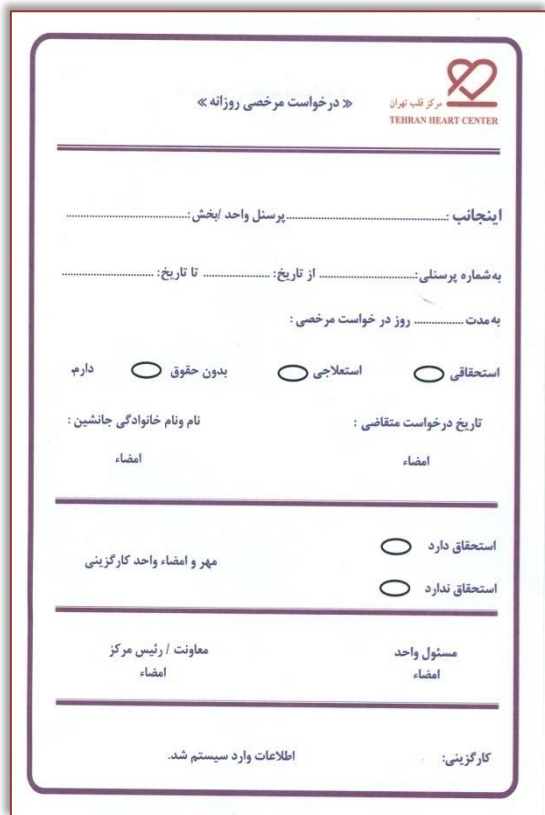 مرکز قلب تهران
TEHRAN HEART CENTER
« درخواست مرخصی روزانه »
اینجانب :............................................پرسنل واحد /بخش:................................
به شماره پرسنلی:......................... از تاریخ: .................. تا تاریخ: ........................
به مدت ............. روز در خواست مرخصی :
استحقاقی استعلاجی بدون حقوق دارم.
تاریخ درخواست متقاضی : نام ونام خانوادگی جانشین :
امضاء امضاء
استحقاق دارد
مهر و امضاء واحد کارگزینی
استحقاق ندارد
مسئول واحد معاونت / رئیس مرکز
امضاء امضاء
کارگزینی: اطلاعات وارد سیستم شد.